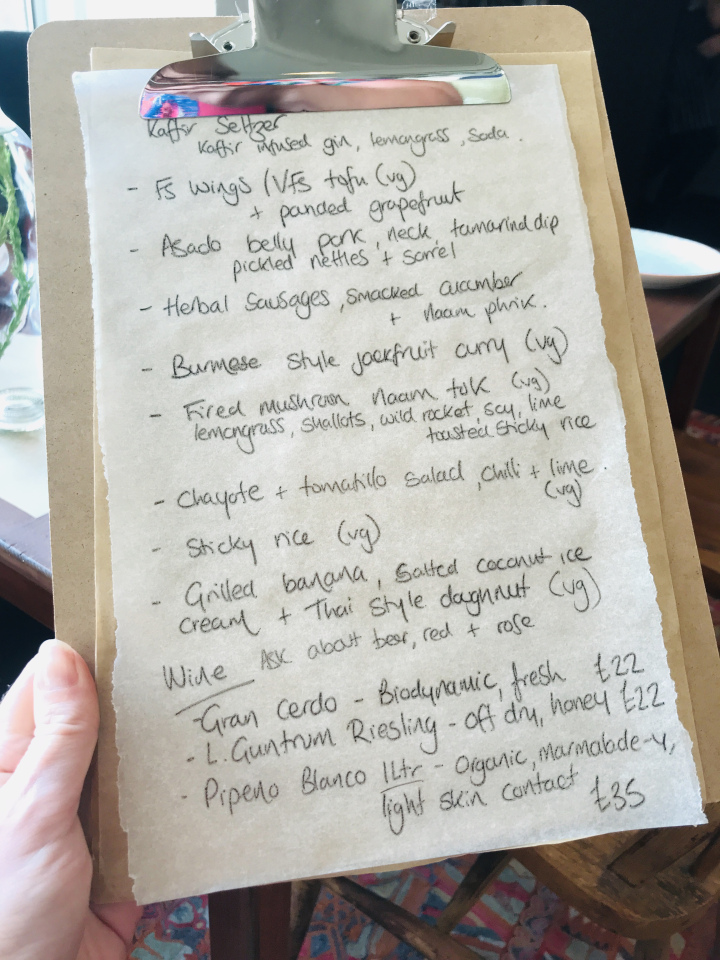 Kaffir Seltzer
Kaffir infused gin, lemongrass, soda.
- FS wings / VFS tofu (vg)
+ panded grapefruit
- Asado belly pork, neck, tamarind dip
pickled nettles + sorrel
- Herbal Sausages, smacked cucumber
+ Naam phrik.
- Burmese style jackfruit curry (vg)
- Fired mushroom naam tok (vg)
lemongrass, shallots, wild rocket, soy, lime
toasted sticky rice
- Chayote + tomatillo salad, chilli + lime.
(vg)
- Sticky rice (vg)
- Grilled banana, salted coconut ice
cream + Thai style doughnut (vg)
Wine Ask about beer, red + rose
- Gran Cerdo - Biodynamic, fresh £22
- L. Guntrum Riesling - off dry, honey £22
- Pipeno Blanco 1Ltr - Organic, marmalade-y,
light skin contact £35